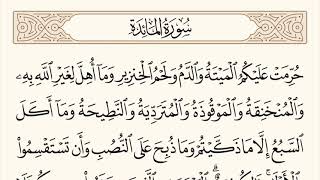 سُورَةُ المَائِدَةِ
حُرِّمَتْ عَلَيْكُمُ الْمَيْتَةُ وَالدَّمُ وَلَحْمُ الْخِنزِيرِ وَمَا أُهِلَّ لِغَيْرِ اللَّهِ بِهِۦ
وَالْمُنْخَنِقَةُ وَالْمَوْقُوذَةُ وَالْمُتَرَدِّيَةُ وَالنَّطِيحَةُ وَمَا أَكَلَ
السَّبُعُ إِلَّا مَا ذَكَّيْتُمْ وَمَا ذُبِحَ عَلَى النُّصُبِ وَأَن تَسْتَقْسِمُوا